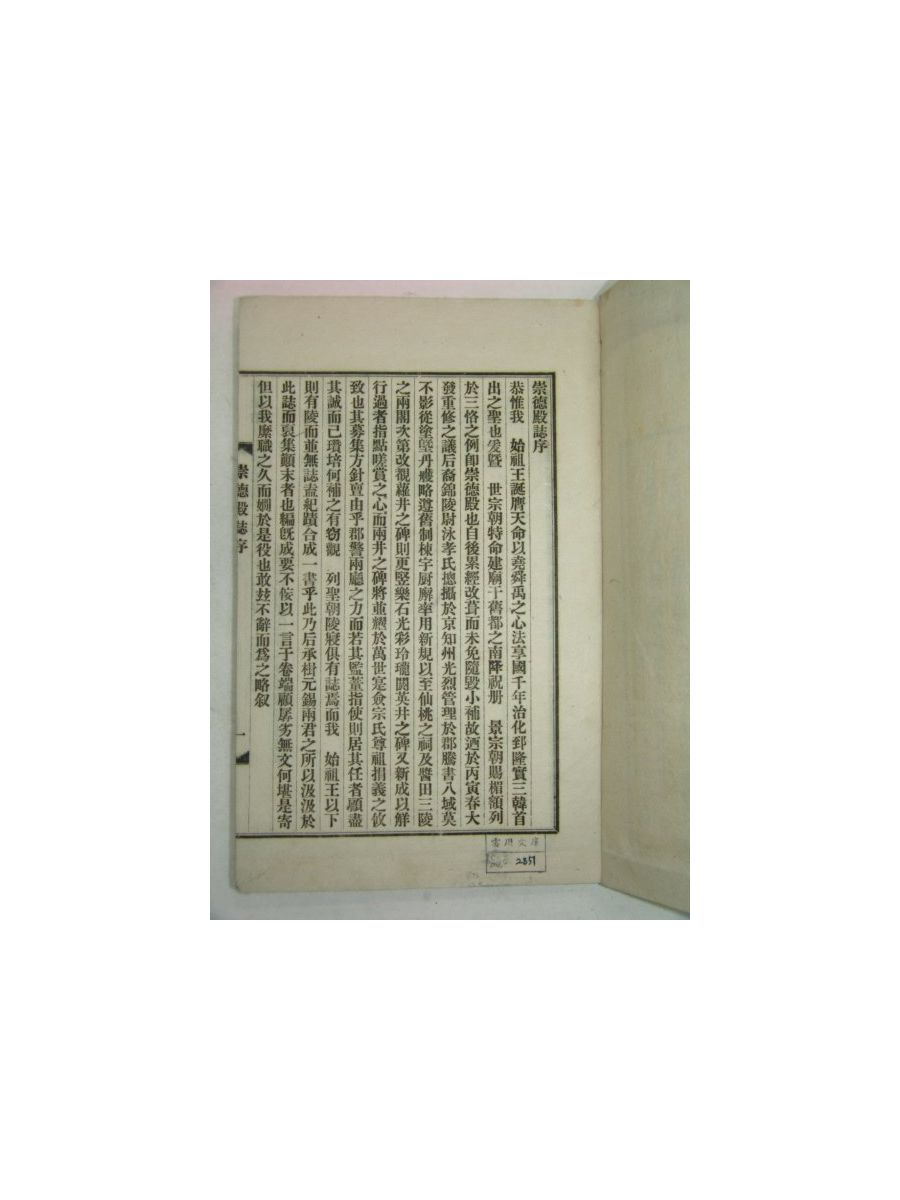 崇德殿誌序
恭惟我 始祖王誕膺天命以堯舜禹之心法享國千年治化郅隆實三韓首
出之聖也爰曁 世宗朝特命建廟于舊都之南降祝册 景宗朝賜楣額列
於三恪之例卽崇德殿也自後累經改葺而未免隨毁小補故迺於丙寅春大
發重修之議后裔錦陵尉泳孝氏摠攝於京知州光烈管理於郡騰書八域莫
不影從塗墍丹雘略遵舊制棟宇厨廨率用新規以至仙桃之祠及醬田三陵
之兩閣次第改觀蘿井之碑則更竪樂石光彩玲瓏閼英井之碑又新成以觧
行過者指點嗟賞之心而兩井之碑將並耀於萬世寔僉宗氏尊祖捐義之攸
致也其募集方針亶由乎郡警兩廳之力而若其監董指使則居其任者顧盡
其誠而已瓚培何補之有窃觀 列聖朝陵寢俱有誌焉而我 始祖王以下
則有陵而並無誌盍紀蹟合成一書乎此乃后承樹元錫兩君之所以汲汲於
此誌而裒集顚末者也編旣成要不侫以一言于卷端顧孱劣無文何堪是寄
但以我縻職之久而嫺於是役也敢玆不辭而爲之略叙
崇德殿誌序
一
2851